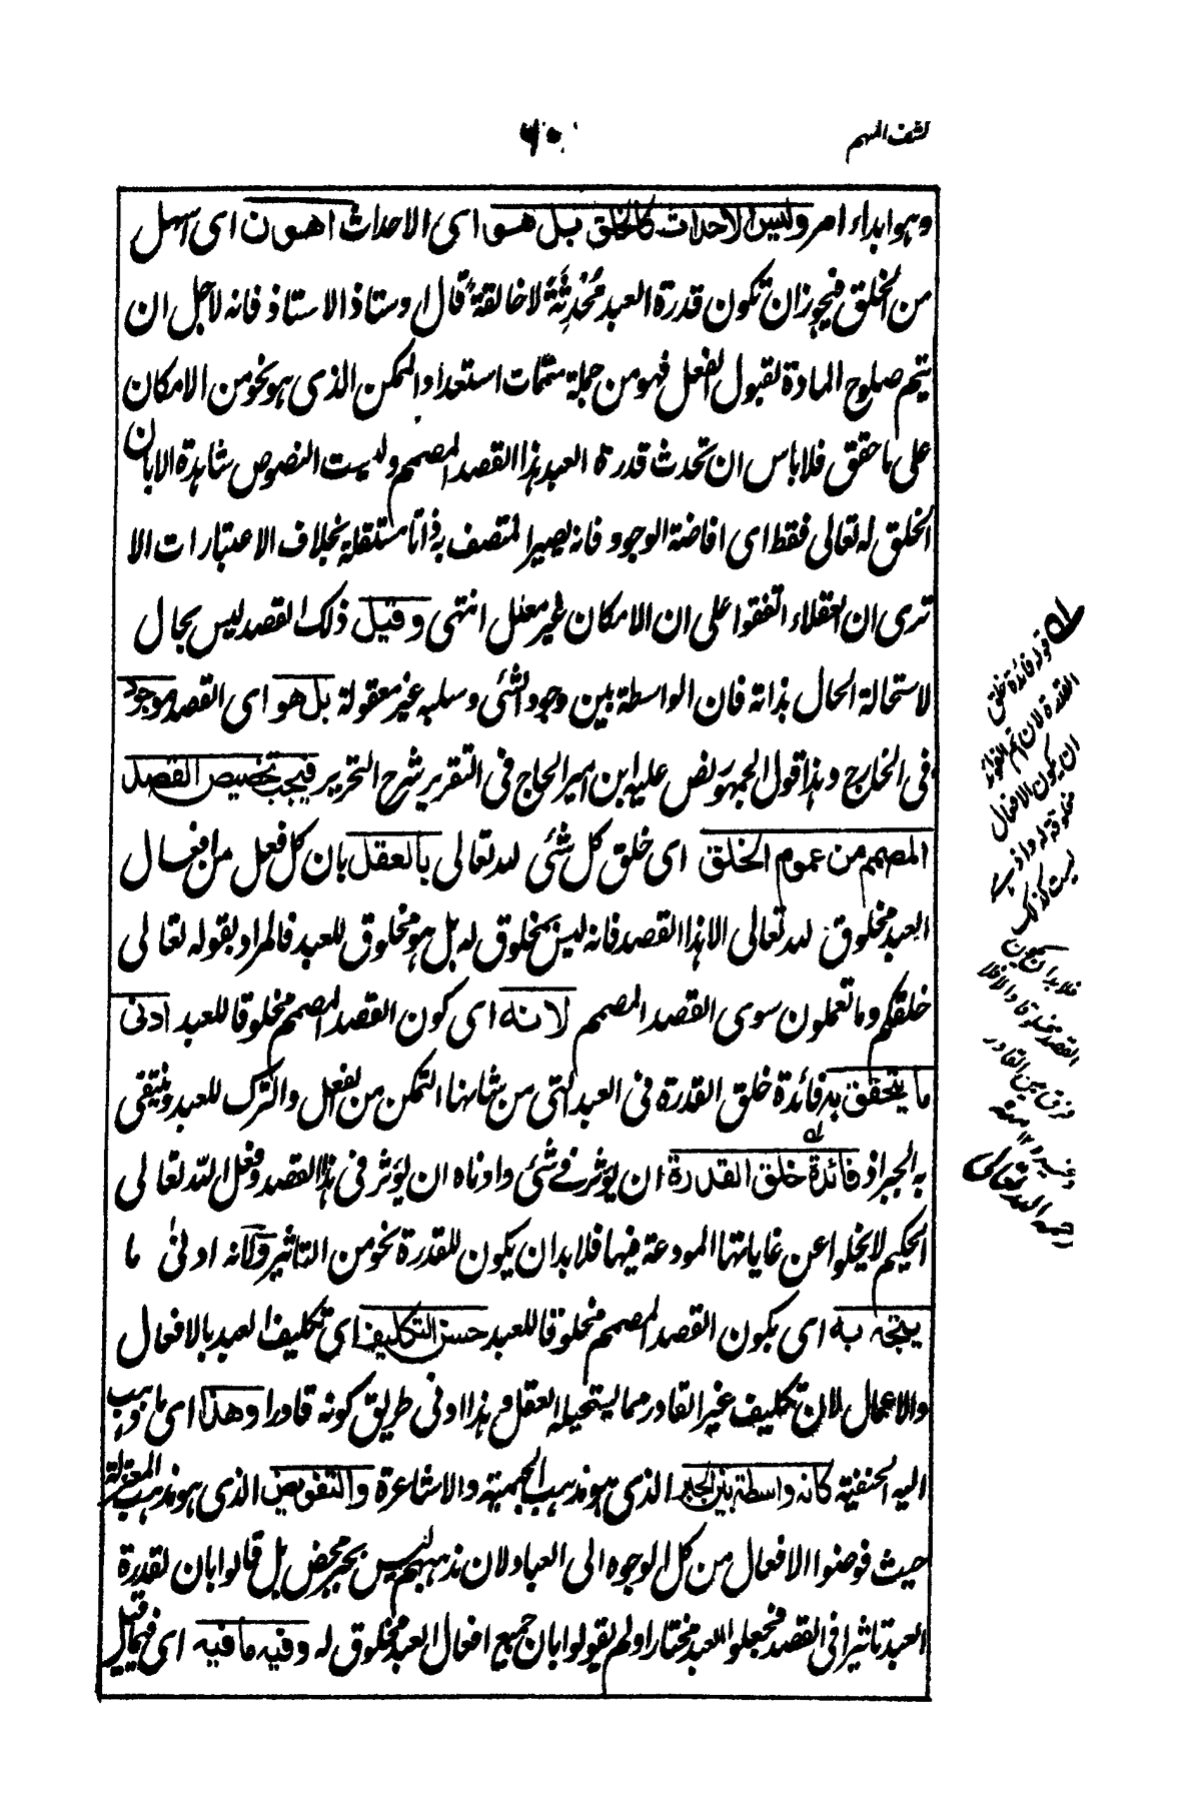 كشف المبهم
٦٠
وهو ابداء امر وليس الاحداث كالخلق بل هو اى الاحداث اهون اى اسهل
من الخلق فيجوز ان تكون قدرة العبد مُحْدِثَةً لا خالقةً قال اوستاذ الاستاذ فانه لاجل ان
يتم صلوح المادة لقبول الفعل فهو من جملة متممات استعداد الممكن الذى هو نحو من الامكان
على ما حقق فلا باس ان تحدث قدرة العبد هذا القصد المصمم وليست النصوص شاهدة الا بان
الخلق له تعالى فقط اى افاضة الوجود فانه يصير المتصف به ذاتا مستقلة بخلاف الاعتبارات الا
ترى ان العقلاء اتفقوا على ان الامكان غير معلل انتهى وقيل ذلك القصد ليس بحال
لاستحالة الحال بذاته فان الواسطة بين وجود الشئ وسلبه غير معقولة بل هو اى القصد موجود
فى الخارج وهذا قول الجمهور نص عليه ابن امير الحاج فى التقرير شرح التحرير فيجب تخصيص القصد
المصمم من عموم الخلق اى خلق كل شئ لله تعالى بالعقل بان كل فعل من افعال
العبد مخلوق لله تعالى الا هذا القصد فانه ليس بمخلوق له بل هو مخلوق للعبد فالمراد بقوله تعالى
خلقكم وما تعملون سوى القصد المصمم لانه اى كون القصد المصمم مخلوقا للعبد ادنى
ما يتحقق به فائدة خلق القدرة فى العبد التى من شانها التمكن من الفعل والترك للعبد وينتفى
به الجبر اذ فائدة خلق القدرة ان يوثر فى شئ وادناه ان يوثر فى هذا القصد وفعل الله تعالى
الحكيم لا يخلوا عن غاياتها المودعة فيها فلا بد ان يكون للقدرة نحو من التاثير ولانه ادنىٰ ما
يتجه به اى بكون القصد المصمم مخلوقا للعبد حسن التكليف اى تكليف العبد بالافعال
والاعمال لان تكليف غير القادر مما يستحيله العقل وهذا ادنى طريق كونه قادرا وهذا اى ما ذهب
اليه الحنفية كانه واسطة بين الجبر الذى هو مذهب الجهمية والاشاعرة والتفويض الذى هو مذهب المعتزلة
حيث فوضوا الافعال من كل الوجوه الى العباد لان مذهبهم ليس بجبر محض بل قالوا بان لقدرة
العبد تاثيرا فى القصد فجعلوا العبد مختارا ولم يقولوا بان جميع افعال العبد مخلوق له وفيه ما فيه اى فيما قيل
قوله فائدة خلق
القدرة لان تم الفوائد
ان يكون الافعال
مخلوقة له واذ
ليست كذلك
فلا بد ان يكون
القصد مخلوقا والا فلا
فرق بين القادر
وغيره ١٢ منه
رحمه الله تعالى